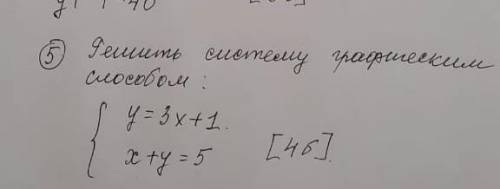 ⑤ Решить систему графическим
способом:
y=3x+1.
x+y=5 [4б].